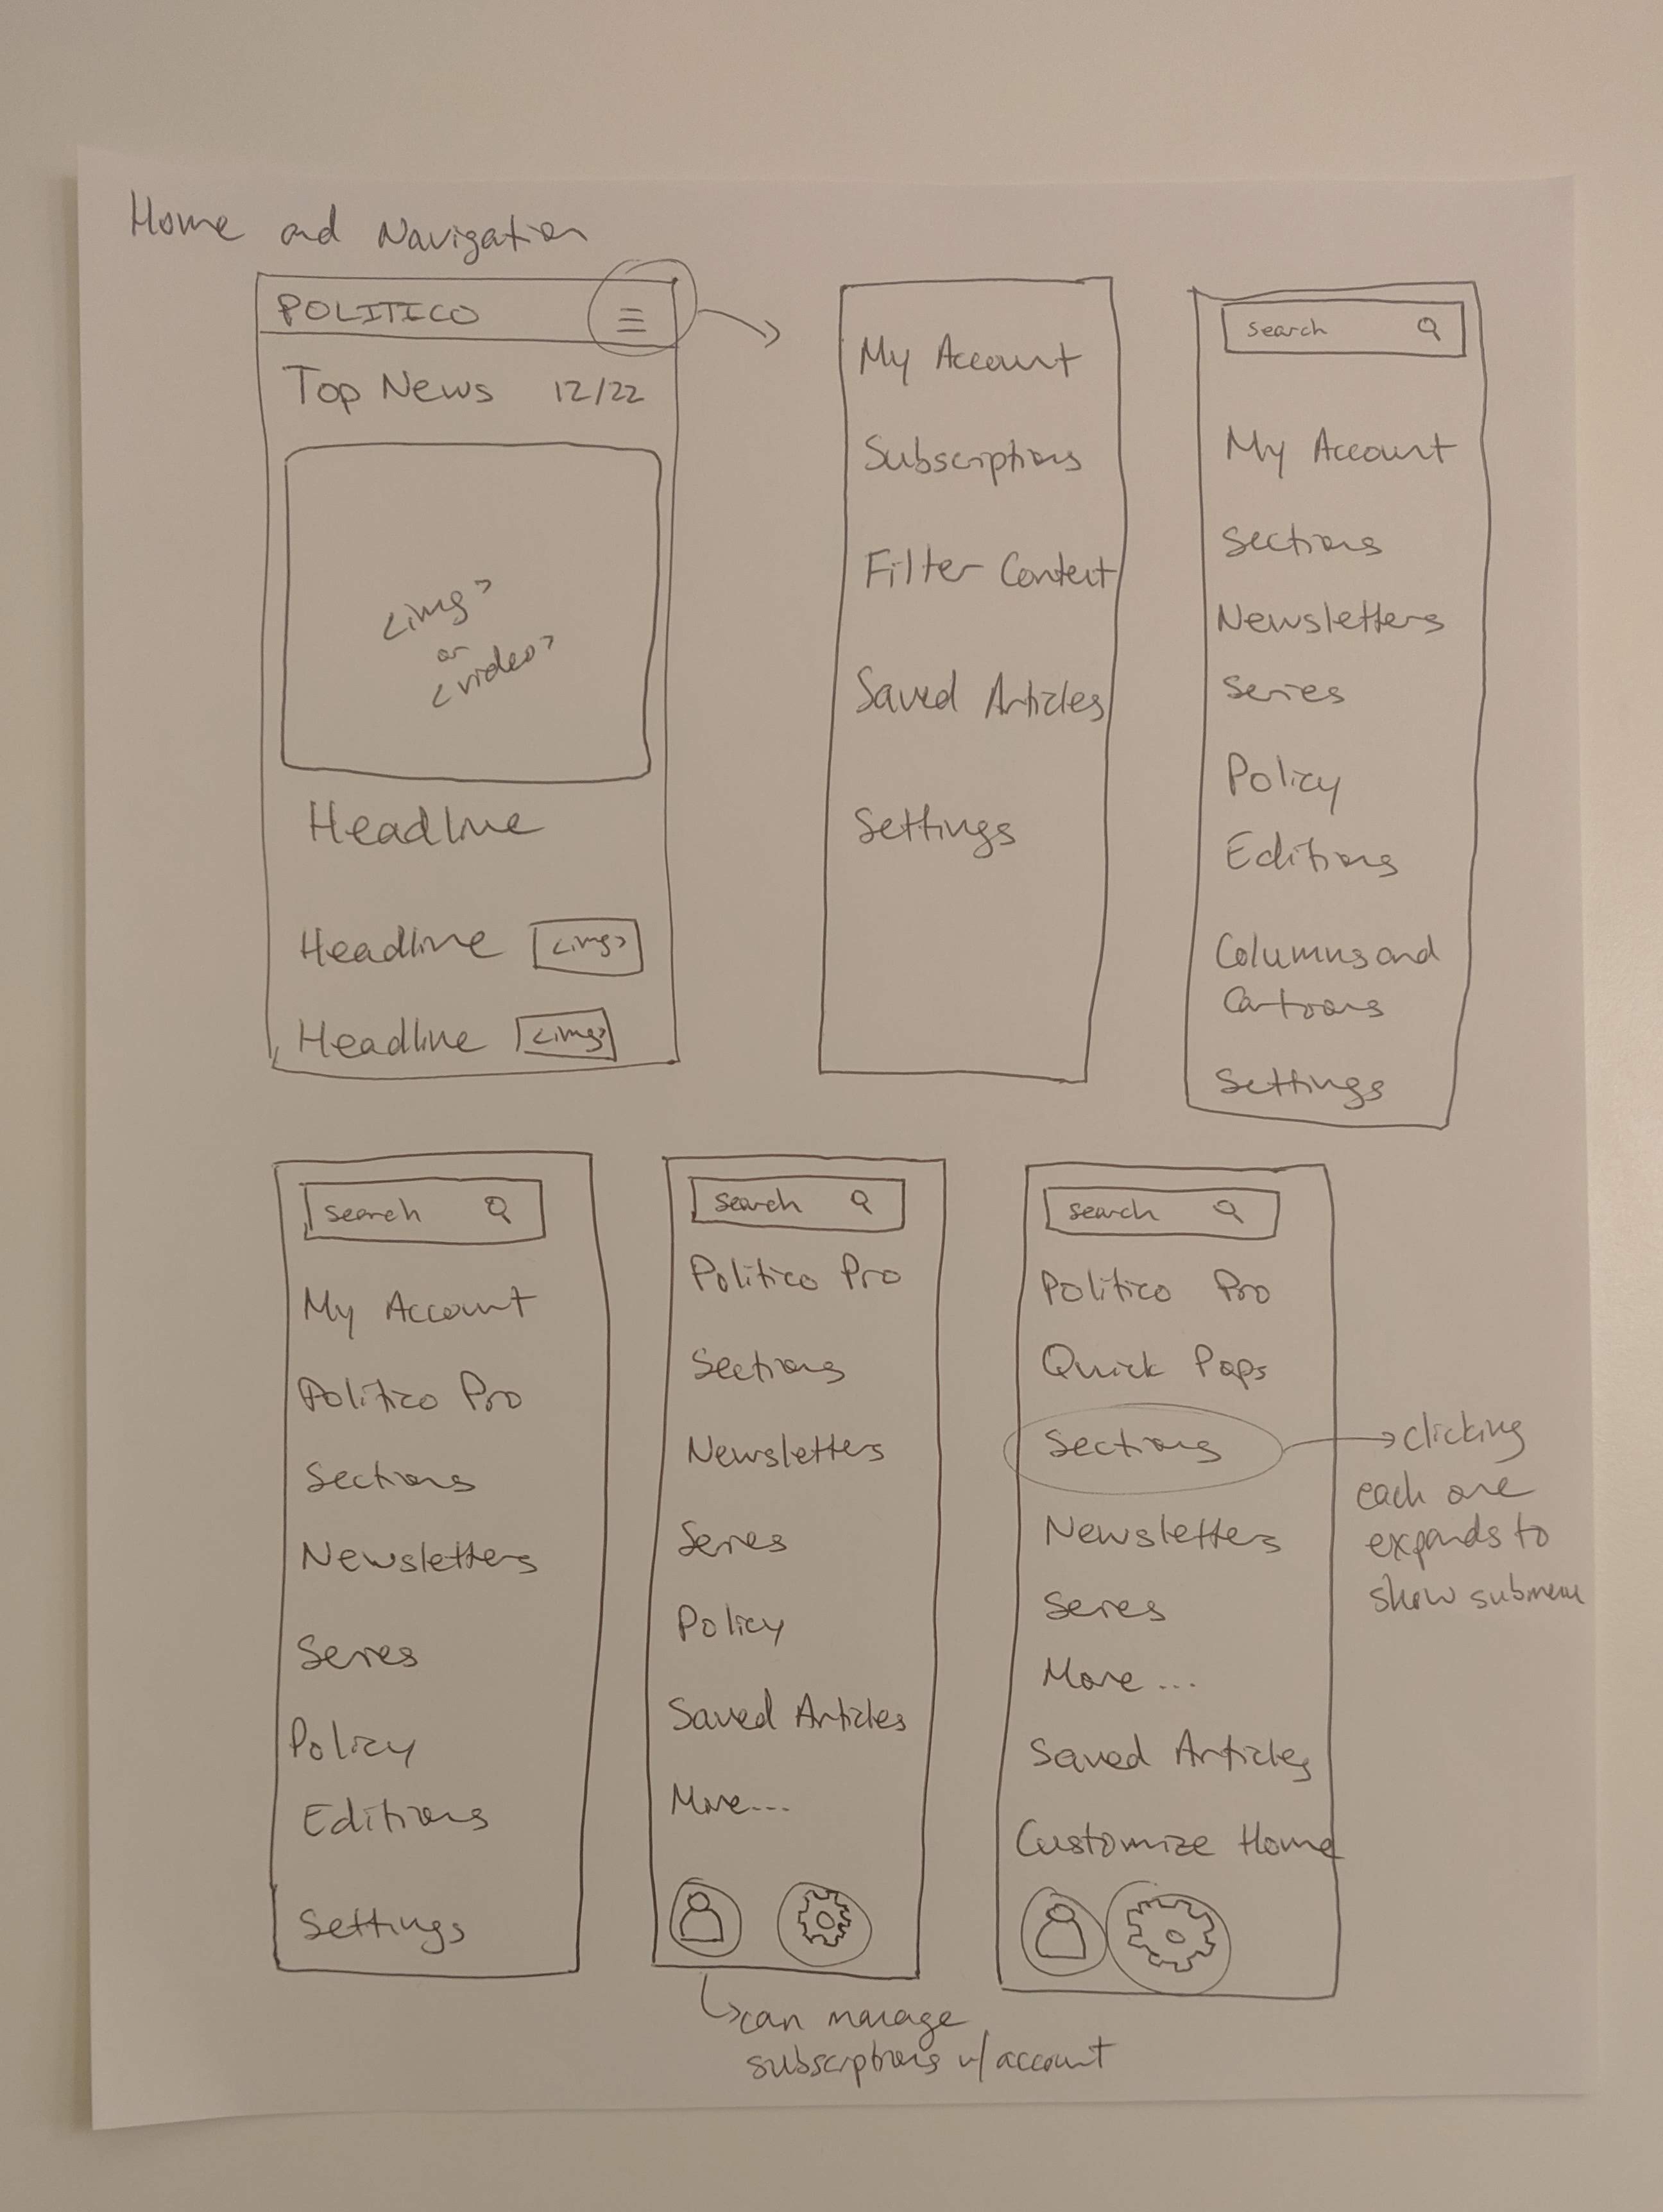 Home and Navigation
POLITICO
Top News 12/22
<img>
or
<video>
Headline
Headline <img>
Headline <img>
My Account
Subscriptions
Filter Content
Saved Articles
Settings
search
My Account
Sections
Newsletters
Series
Policy
Editions
Columns and
Cartoons
Settings
search
My Account
Politico Pro
Sections
Newsletters
Series
Policy
Editions
Settings
search
Politico Pro
Sections
Newsletters
Series
Policy
Saved Articles
More...
can manage
subscriptions w/ account
search
Politico Pro
Quick Pops
Sections
Newsletters
Series
More...
Saved Articles
Customize Home
clicking
each one
expands to
show submenu